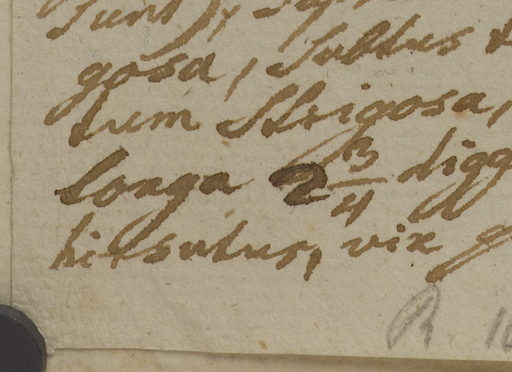 gosa, subtus
tum strigosa,
longa 2 3/4 digg
hirsutus, vix g
R. 10